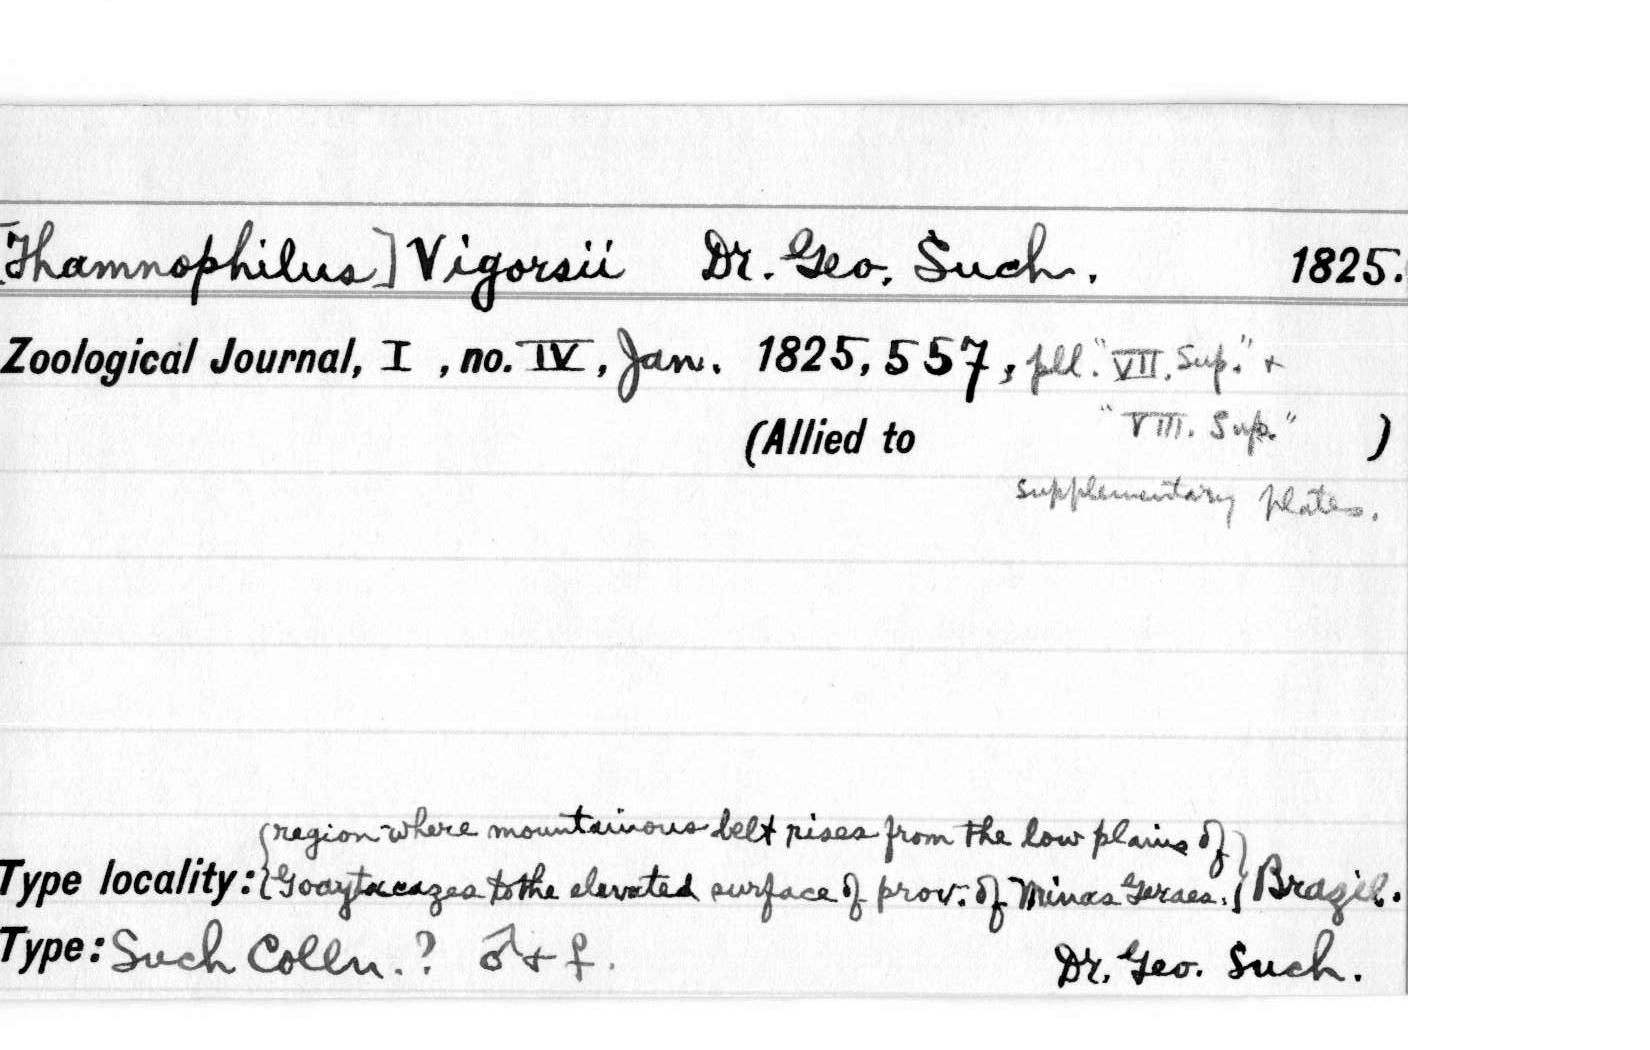 [Thamnophilus] Vigorsii Dr. Geo. Such. 1825.
Zoological Journal, I, no. IV, Jan. 1825, 557, pll. "VII. Sup." +
(Allied to "VIII. Sup." )
supplementary plates.
{region where mountainous belt rises from the low plains of}
Type locality: {Goaytacazes to the elevated surface of prov. of Minas Geraes.} Brazil.
Type: Such Colln.? ♂ + ♀. Dr. Geo. Such.